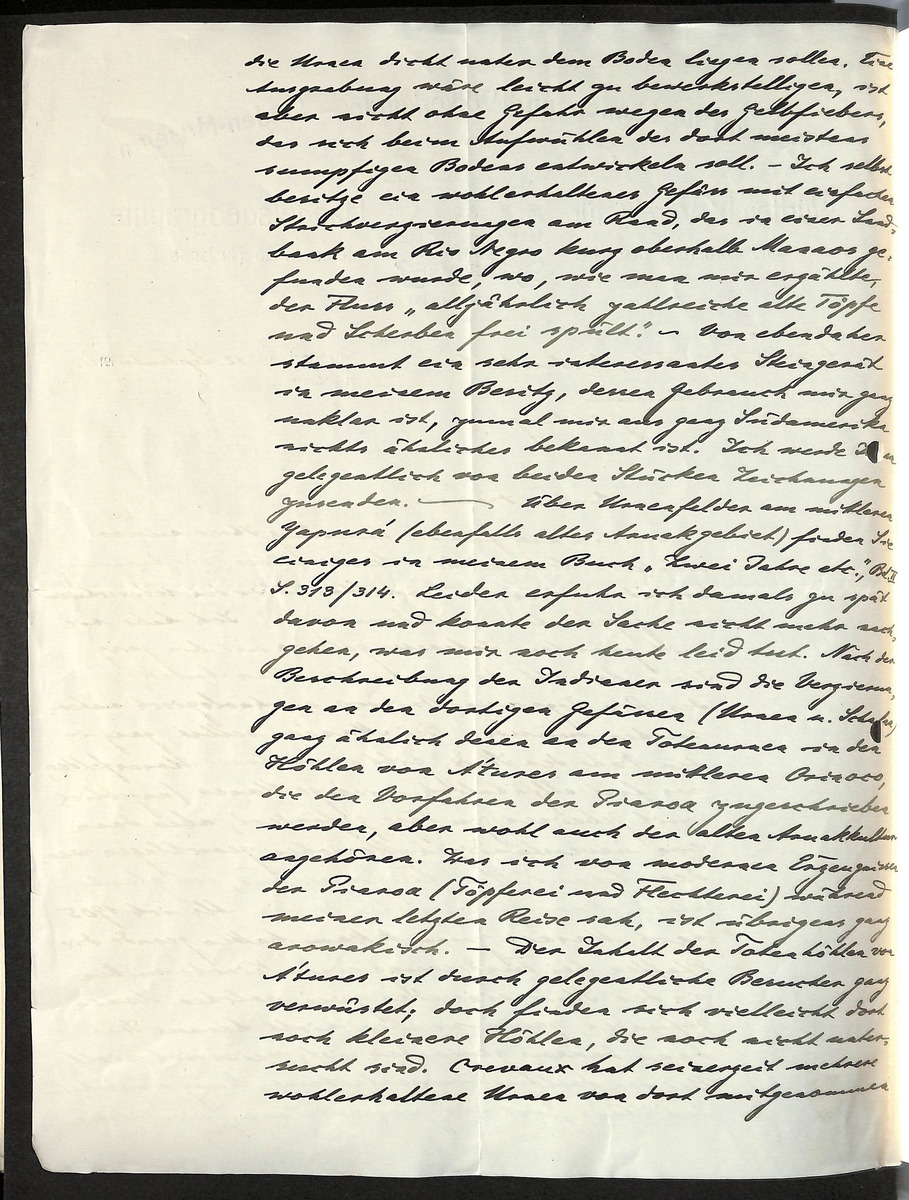 die Urnen dicht unter dem Boden liegen sollen. Eine
Ausgrabung wäre leicht zu bewerkstelligen, ist
aber nicht ohne Gefahr wegen des Gelbfiebers,
das sich beim Aufwühlen des dort meistens
sumpfigen Bodens entwickeln soll. – Ich selbst
besitze ein wohlerhaltenes Gefäss mit einfachen
Strichverzierungen am Rand, das in einer Sand-
bank am Rio Negro kurz oberhalb Manaos ge-
funden wurde, wo, wie man mir erzählte,
der Fluss „alljährlich zahlreiche alte Töpfe
und Scherben frei spült". – Von ebendaher
stammt ein sehr interessantes Steingerät
in meinem Besitz, dessen Gebrauch mir ganz
unklar ist, zumal mir aus ganz Südamerika
nichts ähnliches bekannt ist. Ich werde Ihnen
gelegentlich von beiden Stücken Zeichnungen
zusenden. — Über Urnenfelder am mittleren
Yapurá (ebenfalls altes Aruakgebiet) finden Sie
einiges in meinem Buch „Zwei Jahre etc.", Bd. II
S. 313/314. Leider erfuhr ich damals zu spät
davon und konnte der Sache nicht mehr nach-
gehen, was mir noch heute leid tut. Nach der
Beschreibung der Indianer sind die Verzierun-
gen an den dortigen Gefässen (Urnen u. Schalen)
ganz ähnlich denen an den Totenurnen in den
Höhlen von Atures am mittleren Orinoco,
die den Vorfahren der Piaroa zugeschrieben
werden, aber wohl auch der alten Aruakkultur
angehören. Was ich von modernen Erzeugnissen
der Piaroa (Töpferei und Flechterei) während
meiner letzten Reise sah, ist übrigens ganz
arowakisch. – Der Inhalt der Totenhöhlen von
Atures ist durch gelegentliche Besucher ganz
verwüstet; doch finden sich vielleicht dort
noch kleinere Höhlen, die noch nicht unter-
sucht sind. Crevaux hat seinerzeit mehrere
wohlerhaltene Urnen von dort mitgenommen